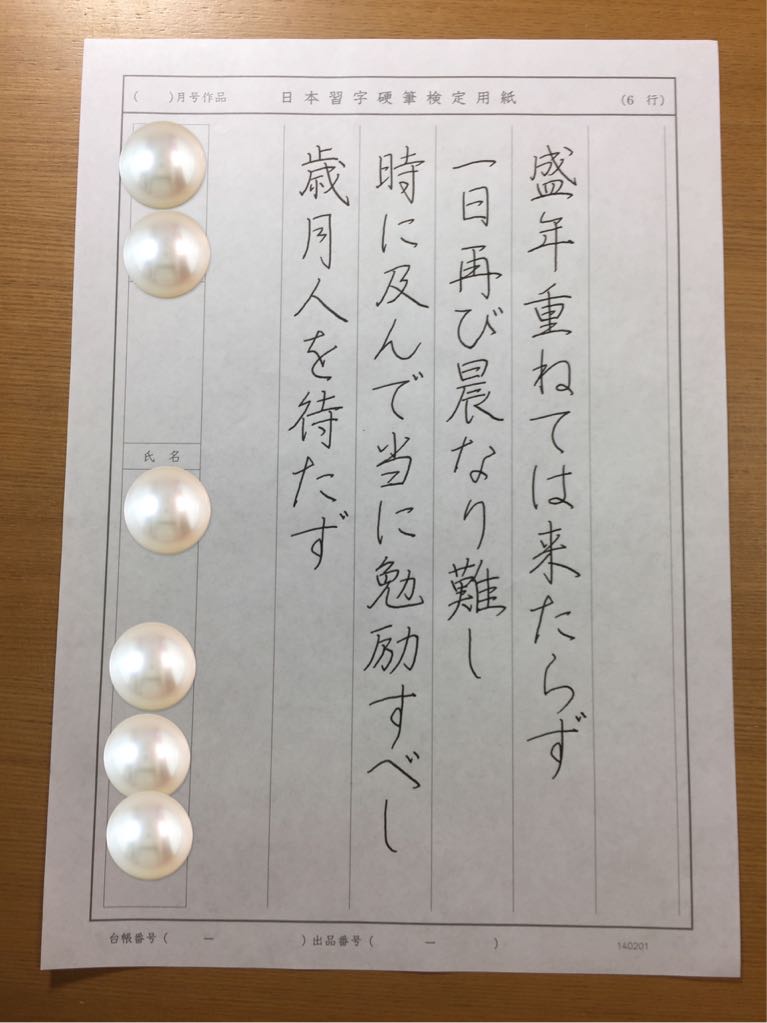 ( )月号作品 日本習字硬筆検定用紙 (6 行)
盛年重ねては来たらず
一日再び晨なり難し
時に及んで当に勉励すべし
歳月人を待たず
氏 名
台帳番号( ー )出品番号( ー )
140201